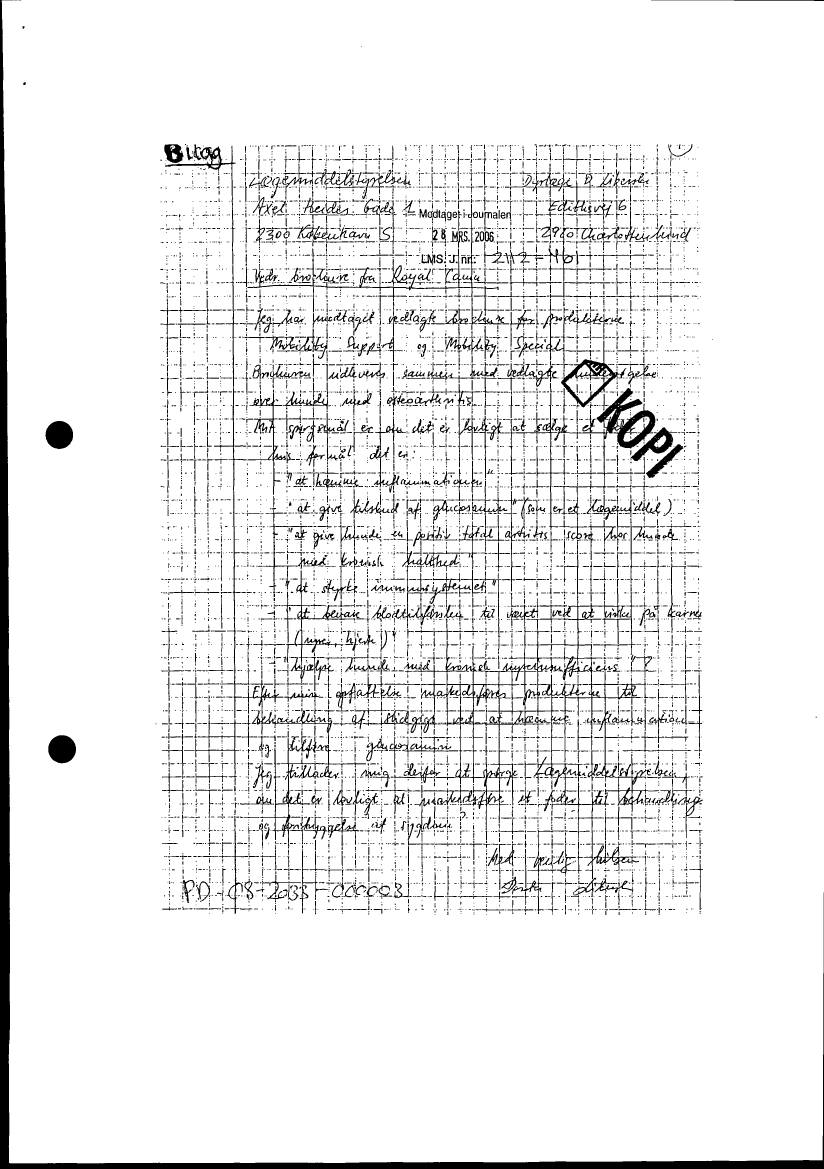 Bilag
1
Lægemiddelstyrelsen
Dyrlæge D. Liberski
Axel Heides Gade 1
Modtaget i Journalen
Edithsvej 6
2300 København S
28 MRS. 2006
2920 Charlottenlund
LMS. J. nr.: 2112-461
Vedr. brochure fra Royal Canin
Jeg har modtaget vedlagte brochure for produkterne
Mobility Support og Mobility Special
Brochuren udleveres sammen med vedlagte
over hunde med osteoarthritis.
KOPI
Mit spørgsmål er om det er lovligt at sælge et
hvis formål det er:
- "at hæmme inflammationen"
- "at give tilskud af glucosamin" (som er et lægemiddel)
- "at give hunde en positiv total arthritis score hos hunde
med kronisk halthed"
- "at styrke immunsystemet"
- "at bevare blodtilførslen til vævet ved at virke på karrene
(nyrer, hjerte)"
- "hjælpe hunde med kronisk nyreinsufficiens"?
Efter min opfattelse markedsføres produkterne til
behandling af slidgigt ved at hæmme inflammation
og tilføre glucosamin
Jeg tillader mig derfor at spørge Lægemiddelstyrelsen,
om det er lovligt at markedsføre et foder til behandling
og forebyggelse af sygdom?
Med venlig hilsen
PD-CS-2033-000003